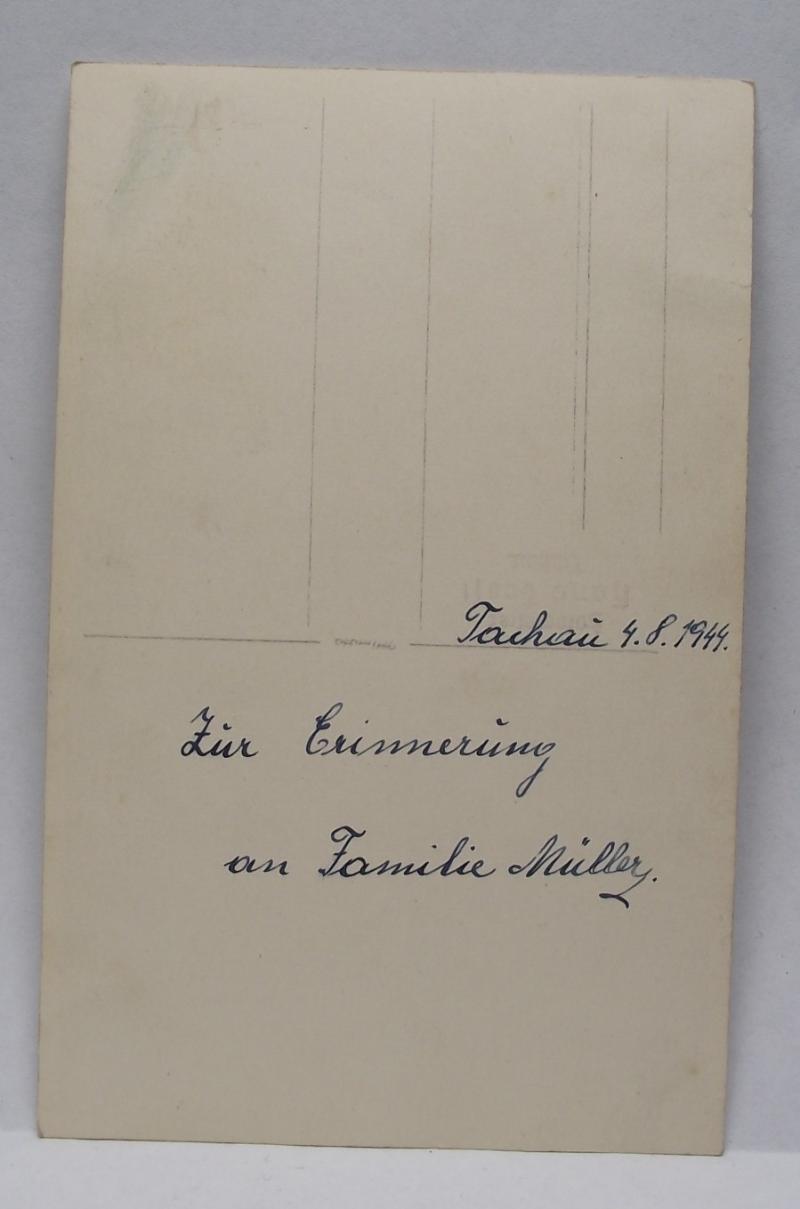 Tachau 4.8.1944.
Zur Erinnerung
an Familie Müller.